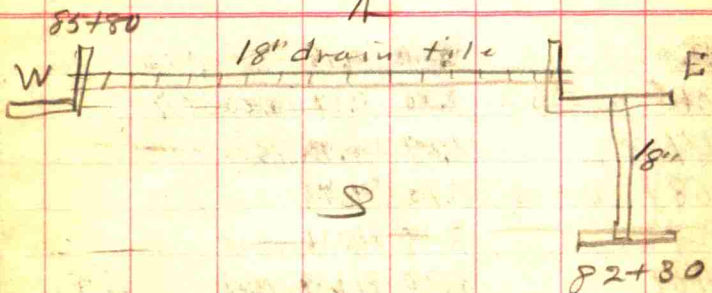 85+80
W 18" drain tile E
18"
S
82+30